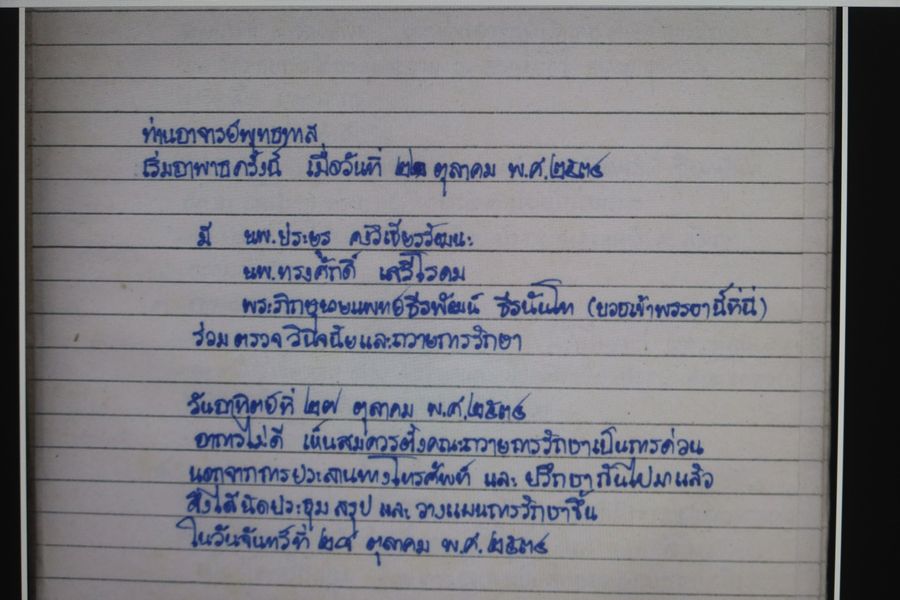 ท่านอาจารย์พุทธทาส
เริ่มอาพาธครั้งนี้ เมื่อวันที่ ตุลาคม พ.ศ.๒๕๓๔
มี นพ.ประยูร คงวิเชียรวัฒนะ
นพ.ทรงศักดิ์ เสรีโรดม
พระภิกษุนายแพทย์ธีรพัฒน์ ธีรนันโท (บวชเข้าพรรษานี้ที่นี่)
ร่วมตรวจวินิจฉัยและถวายการรักษา
วันอาทิตย์ที่ ๒๗ ตุลาคม พ.ศ.๒๕๓๔
อาการไม่ดี เห็นสมควรตั้งคณะถวายการรักษาเป็นการด่วน
นอกจากการประสานทางโทรศัพท์ และ ปรึกษากันไปมาแล้ว
จึงได้นัดประชุม สรุป และ วางแผนการรักษาขึ้น
ในวันจันทร์ที่ ๒๘ ตุลาคม พ.ศ.๒๕๓๔